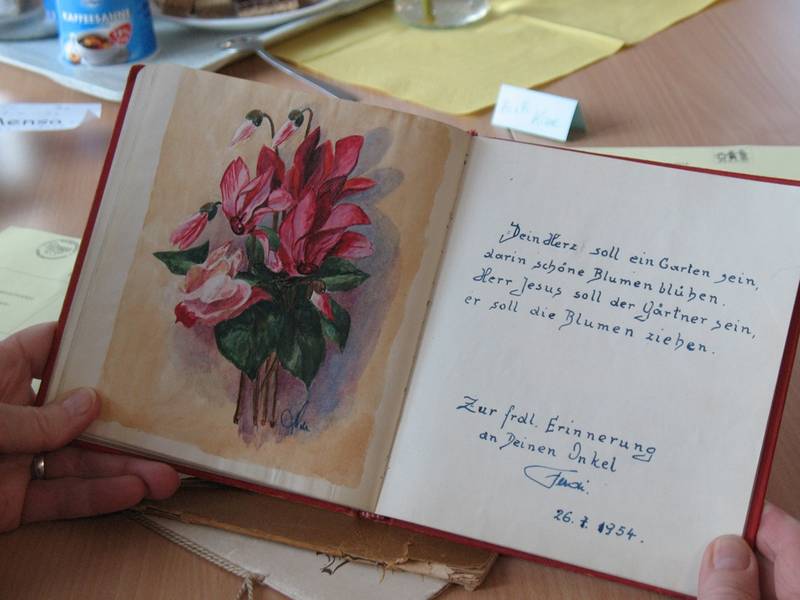 KAFFEESAHNE
Mensa
Dein Herz soll ein Garten sein,
darin schöne Blumen blühen.
Herr Jesus soll der Gärtner sein,
er soll die Blumen ziehen.
Zur frdl. Erinnerung
an Deinen Onkel
Ferdi.
26. 7. 1954.